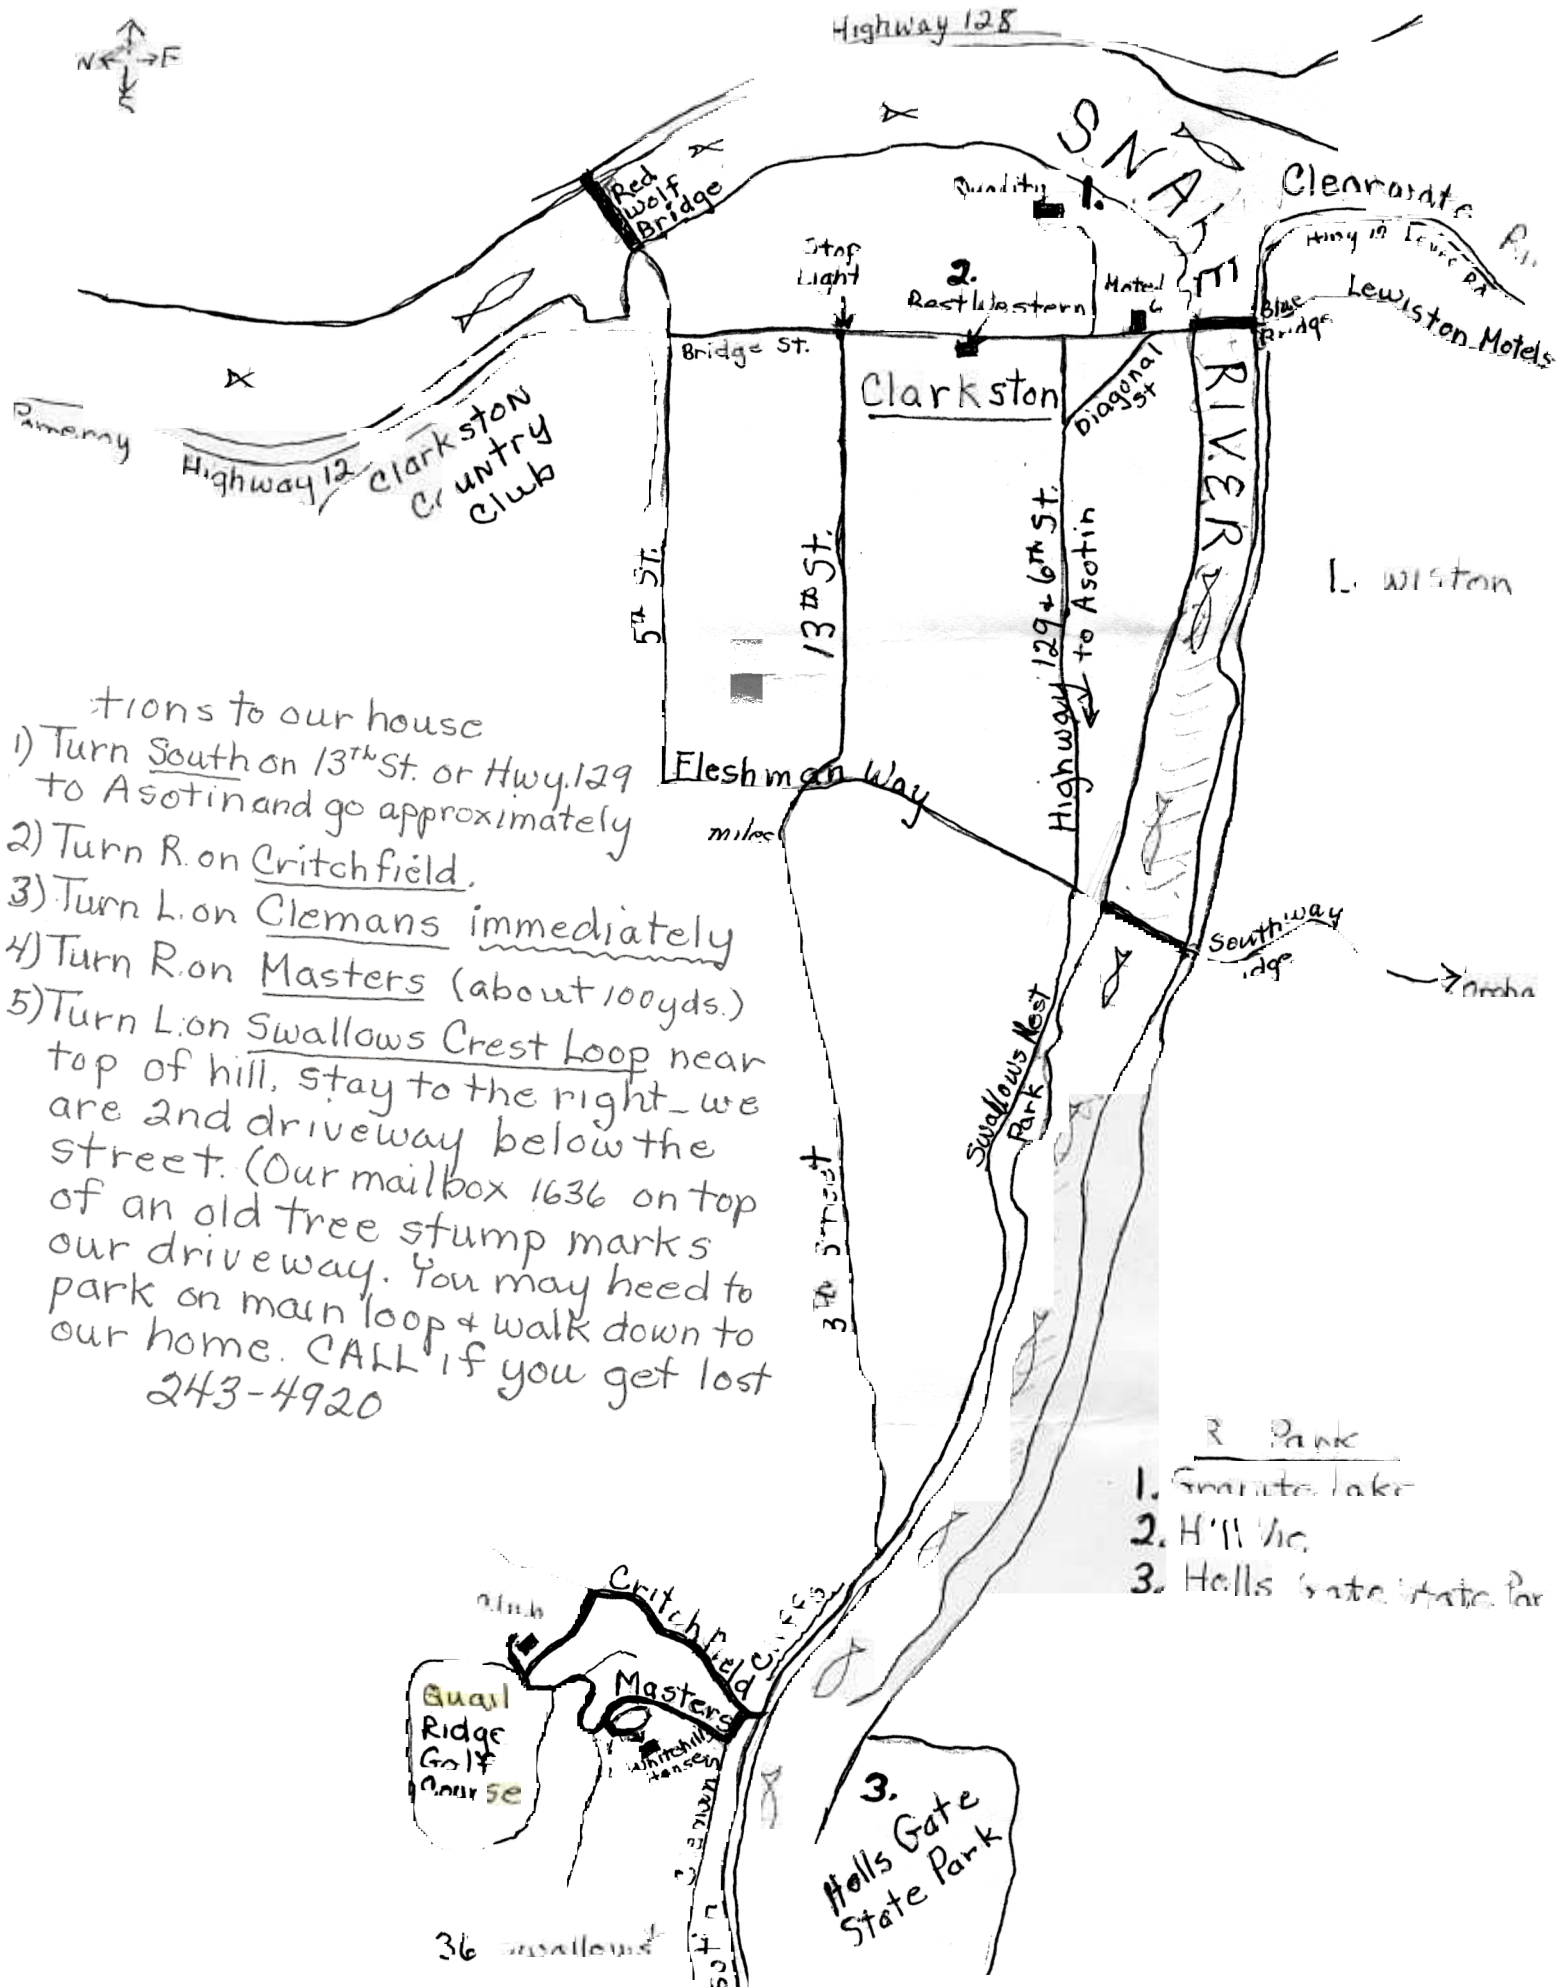 Highway 128
Red
Wolf
Bridge
SNAKE
RIVER
Quality
1.
Stop
Light
2.
Best Western
Motel
6
Blue
Bridge
Hwy 12
Lewiston Motels
Bridge St.
Clarkston
Diagonal
St
Pomeroy
Highway 12
Clarkston
Country
Club
5th St.
13th St.
Highway 129 & 6th St.
to Asotin
Fleshman Way
miles
Southway
Swallows Nest
Park
tions to our house
1) Turn South on 13th St. or Hwy. 129
to Asotin and go approximately
2) Turn R. on Critchfield.
3) Turn L. on Clemans immediately
4) Turn R. on Masters (about 100 yds.)
5) Turn L. on Swallows Crest Loop near
top of hill, stay to the right - we
are 2nd driveway below the
street. (Our mailbox 1636 on top
of an old tree stump marks
our driveway. You may need to
park on main loop & walk down to
our home. CALL if you get lost
243-4920
Street
R Park
1. Granite Lake
2. Hill
3. Hells Gate State Par
Critchfield
Cliffs
Masters
Quail
Ridge
Golf
Course
3.
Hells Gate
State Park
36